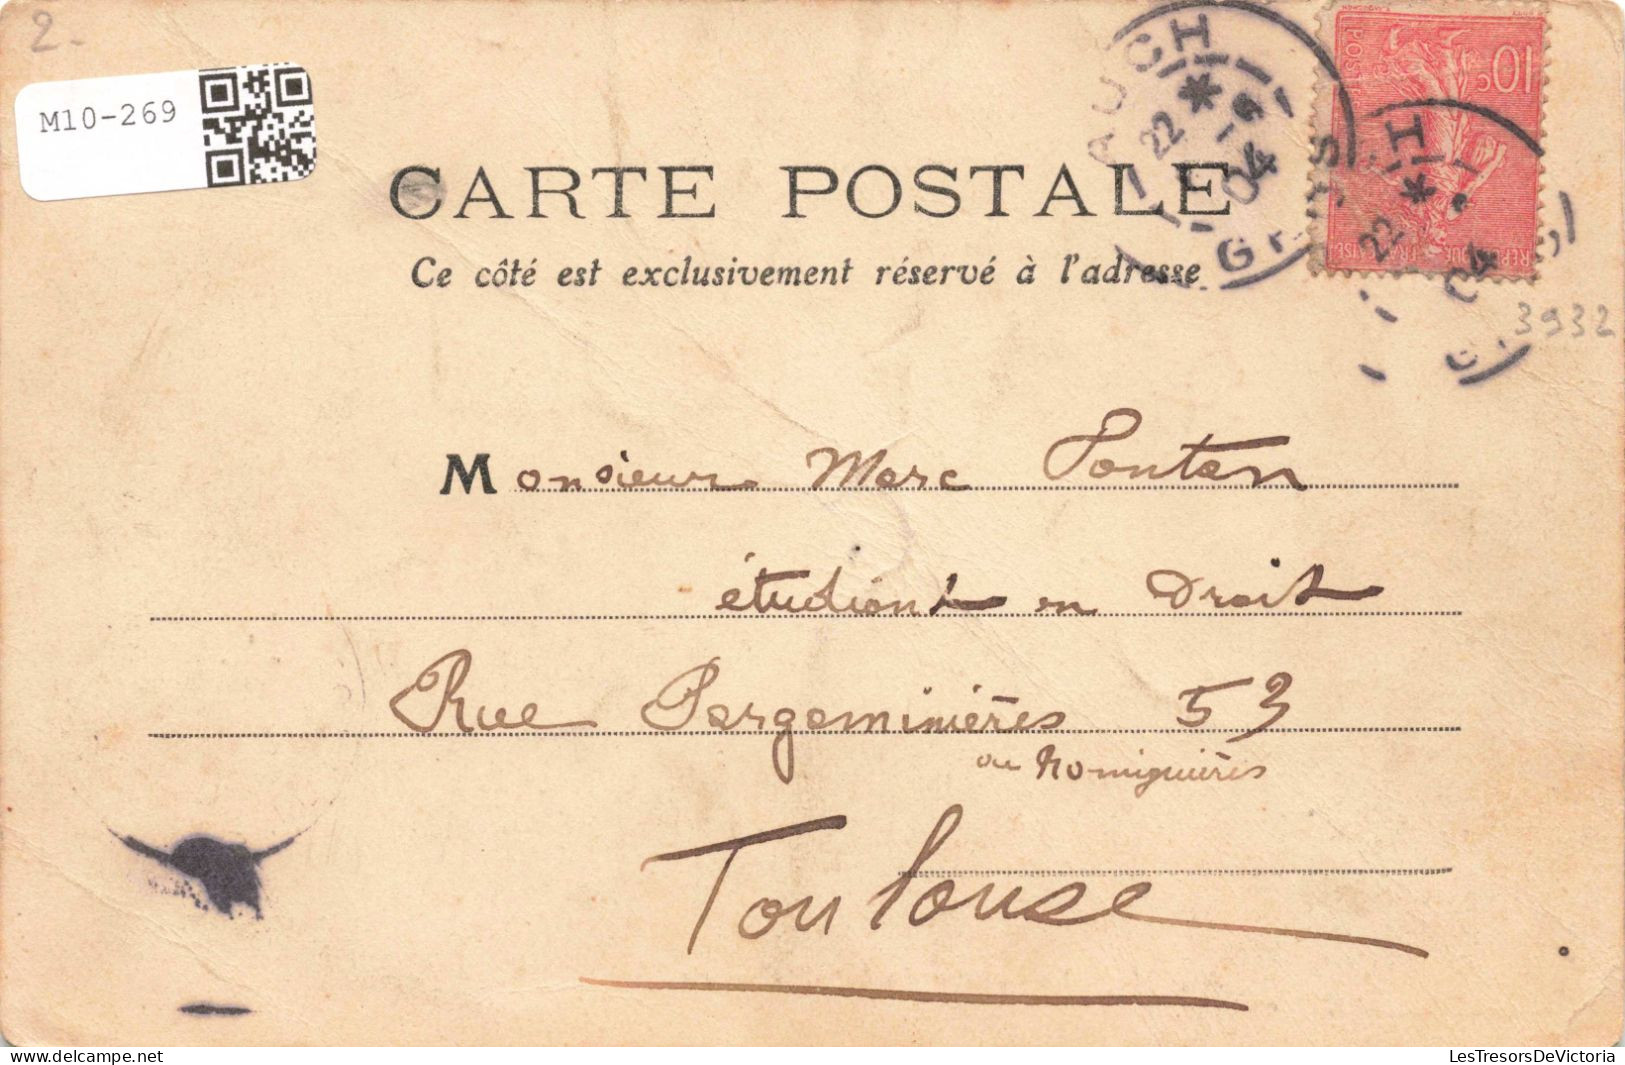 2-
M10-269
10c
POSTES
AUCH
GERS
22
04
CARTE POSTALE
Ce côté est exclusivement réservé à l'adresse
3932
Monsieur Marc Pontan
étudiant en Droit
Rue Pargaminières 53
ou Romiguières
Toulouse
LesTresorsDeVictoria